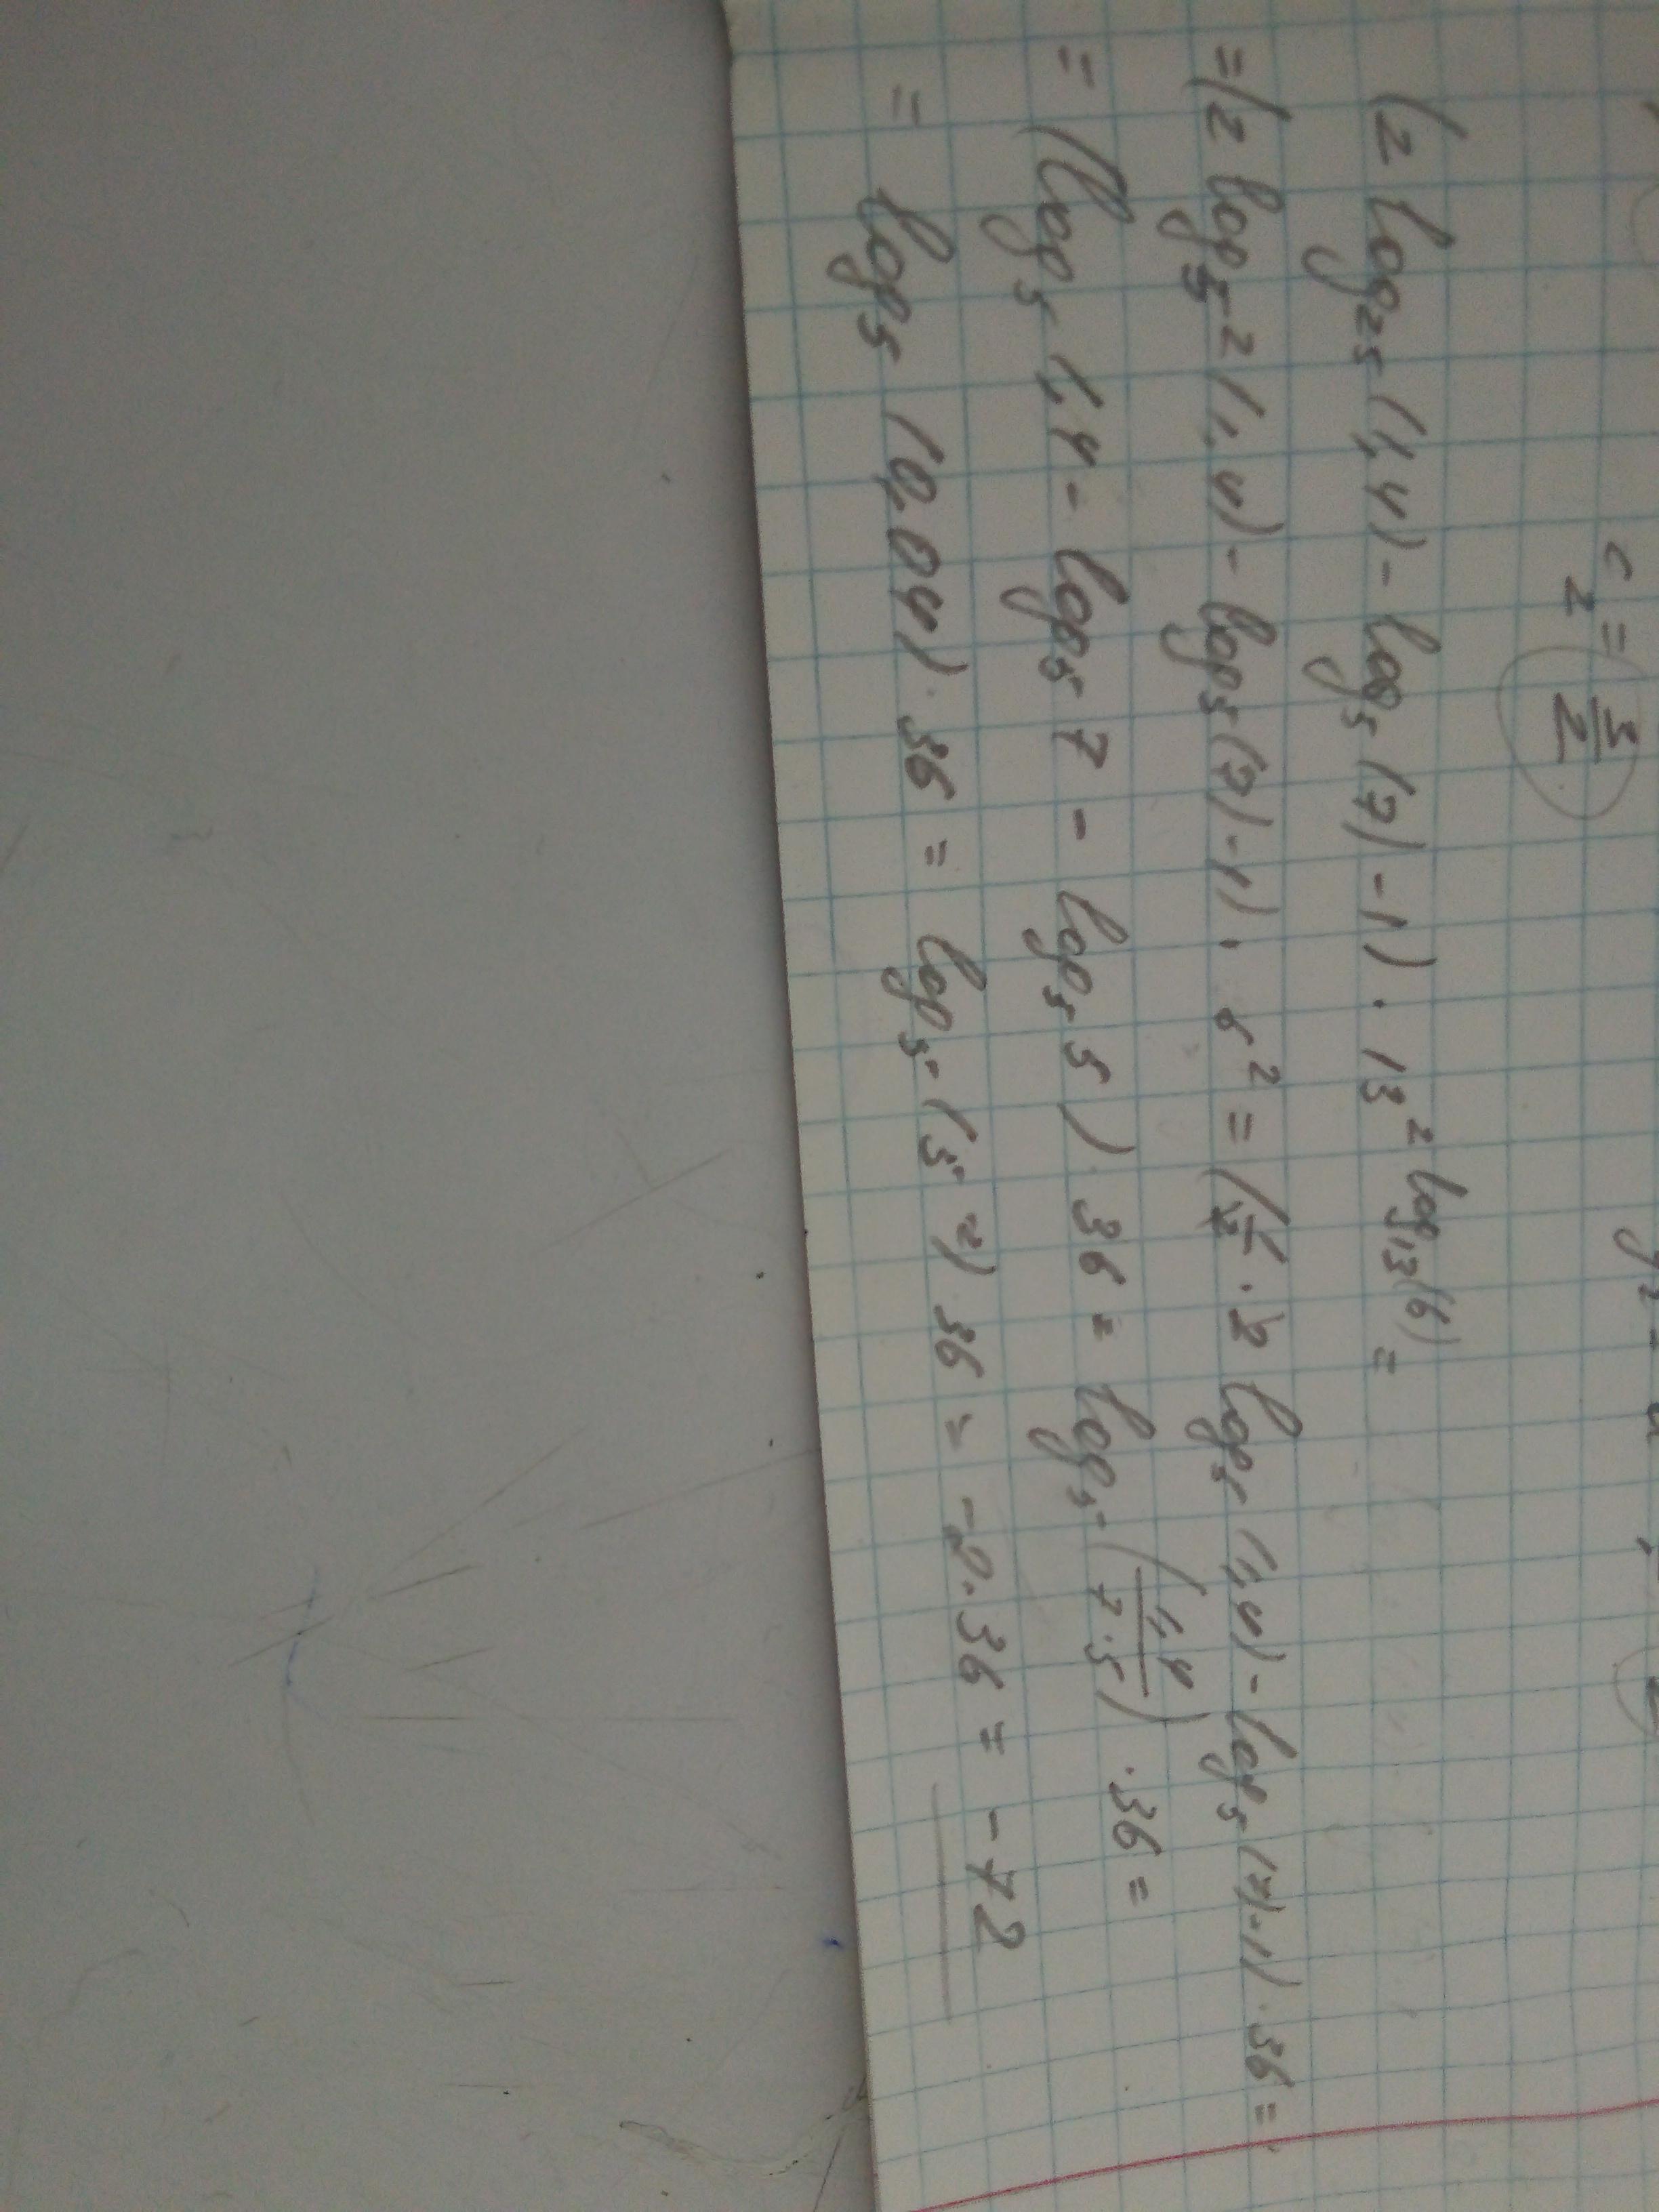 c₂ = 5/2
(2 log₂₅(1,4) - log₅(7) - 1) · 13^(2 log₁₃(6)) =
= (2 log₅²(1,4) - log₅(7) - 1) · 6² = (1/2 · 2 log₅(1,4) - log₅(7) - 1) · 36 =
= (log₅ 1,4 - log₅ 7 - log₅ 5) · 36 = log₅(1,4/(7·5)) · 36 =
= log₅(0,04) · 36 = log₅(5⁻²) 36 = -2·36 = -72